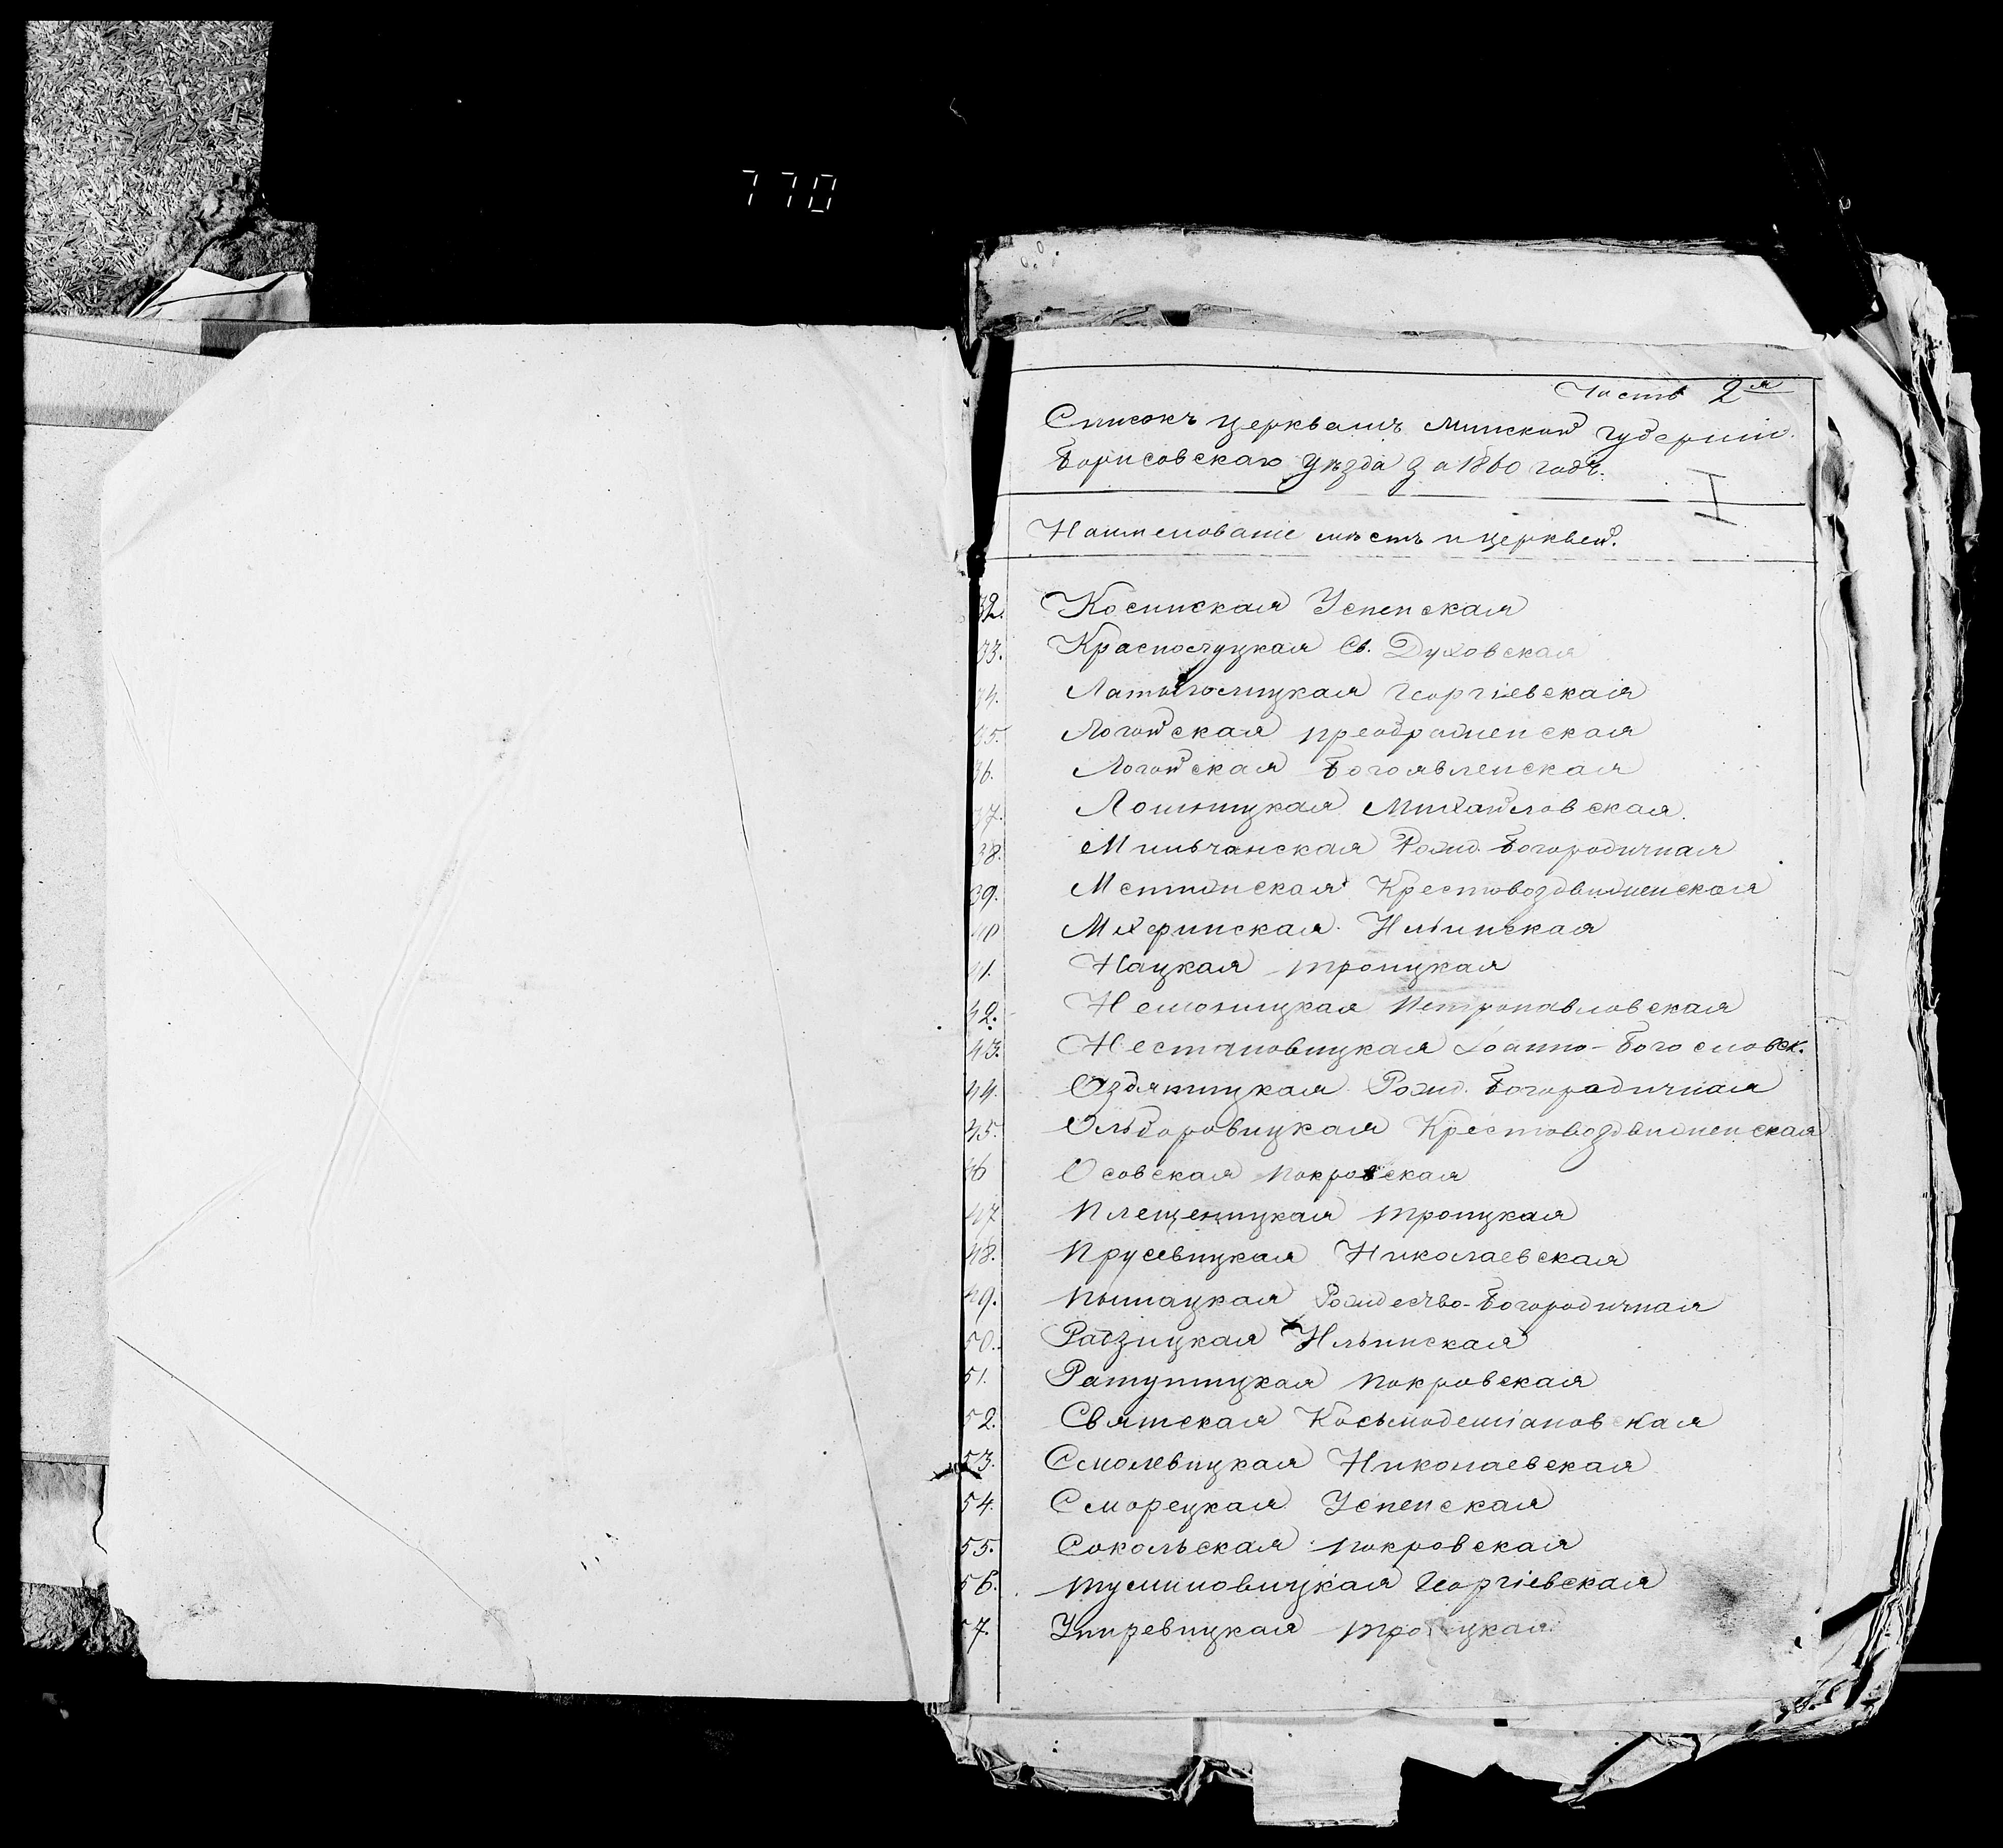 770
Часть 2я
Списокъ церквамъ Минской губерніи
Борисовскаго уѣзда за 1860 годъ.
I
Наименованіе мѣстъ и церквей.
32. Косинская Успенская
33. Краснолуцкая Св. Духовская
34. Латыголицкая Георгіевская
35. Логойская Преображенская
36. Логойская Богоявленская
37. Лошницкая Михайловская.
38. Мильчанская Рожд. Богородичная
39. Мстижская Крестовоздвиженская
40 Мхеринская Ильинская
41. Нацкая Троицкая
42. Немоницкая Петропавловская
43. Нестановицкая Іоанно-Богословск.
44. Оздятицкая Рожд. Богородичная
45. Ольхоровицкая Крестовоздвиженская
46 Осовская Покровская
47 Плещеницкая Троицкая
48. Прусевицкая Николаевская
49. Пышацкая Рождество-Богородичная
50. Ильинская
51. Ратутицкая Покровская
52. Святская Косьмодеміановская
53. Смолевицкая Николаевская
54. Сморецкая Успенская
55. Сокольская Покровская
56. Тумиловицкая Георгіевская
57. Упиревицкая Троицкая